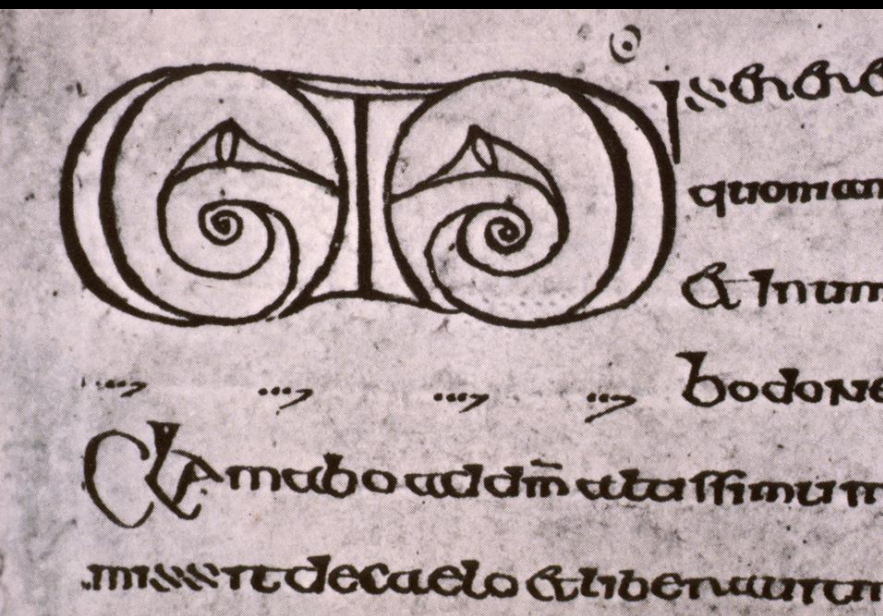 MIserere
quoniam
& in um
bo done
Clamabo ad dm̄ altissimum
missit de caelo & liberauit m